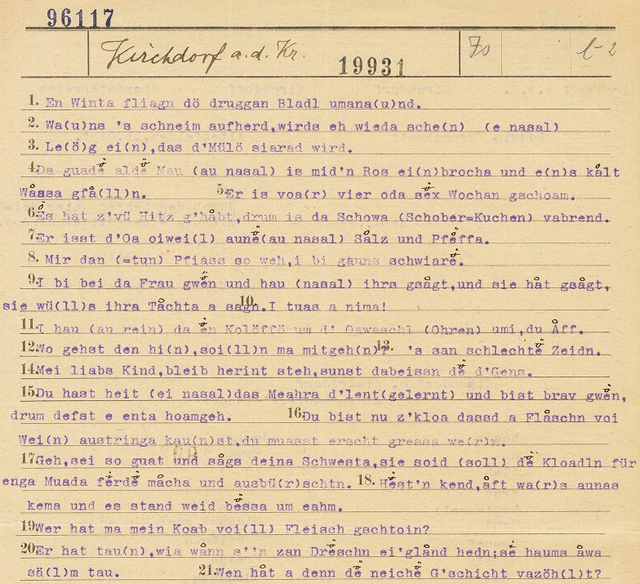 96117
Kirchdorf a.d. Kr. 19931
1. En Winta fliagn dö druggan Bladl umana(u)nd.
2. Wa(u)ns 's schneim aufherd,wirds eh wieda sche(n) (e nasal)
3. Le(ö)g ei(n),das d'Mülö siarad wird.
4. Da guade alde Mau (au nasal) is mid'n Ros ei(n)brocha und e(n)s kålt
Wåassa gfå(ll)n. 5. Er is voa(r) vier oda sex Wochan gschoam.
6. Es hat z'vü Hitz g'håbt,drum is da Schowa (Schober=Kuchen) vabrend.
7. Er isst d'Oa oiwei(l) aune(au nasal) Sålz und Pfeffa.
8. Mir dan (=tun) Pfiass so weh,i bi gauns schwiare.
9. I bi bei da Frau gwen und hau (nasal) ihrs gsågt,und sie håt gsågt,
sie wü(ll)s ihra Tåchta a sagn. 10. I tuas a nima!
11. I hau (au rein) da en Kolöffö um d' Oawaschl (Ohren) umi,du Åff.
12. Wo gehst den hi(n),soi(ll)n ma mitgeh(n)? 13. 's san schlechte Zeidn.
14. Mei liabs Kind,bleib herint steh,sunst dabeissn de d'Gens.
15. Du hast heit (ei nasal)das Meahra d'lent(gelernt) und bist brav gwen,
drum defst e enta hoamgeh. 16. Du bist nu z'kloa dassd a Flåschn voi
Wei(n) austringa kau(n)st,du muasst erscht gressa we(r)n.
17. Geh,sei so guat und sågs deina Schwesta,sie soid (soll) de Kloadln für
enga Muada ferde måcha und ausbü(r)schtn. 18. Hest'n kend,åft wa(r)s aunas
kema und es stand weid bessa um eahm.
19. Wer hat ma mein Koab voi(ll) Fleisch gschtoin?
20. Er hat tau(n),wia wånn s''n zan Dreschn ei'glånd hedn;se haums åwa
sä(l)m tau. 21. Wen håt a denn de neiche G'schicht vazöh(l)t?